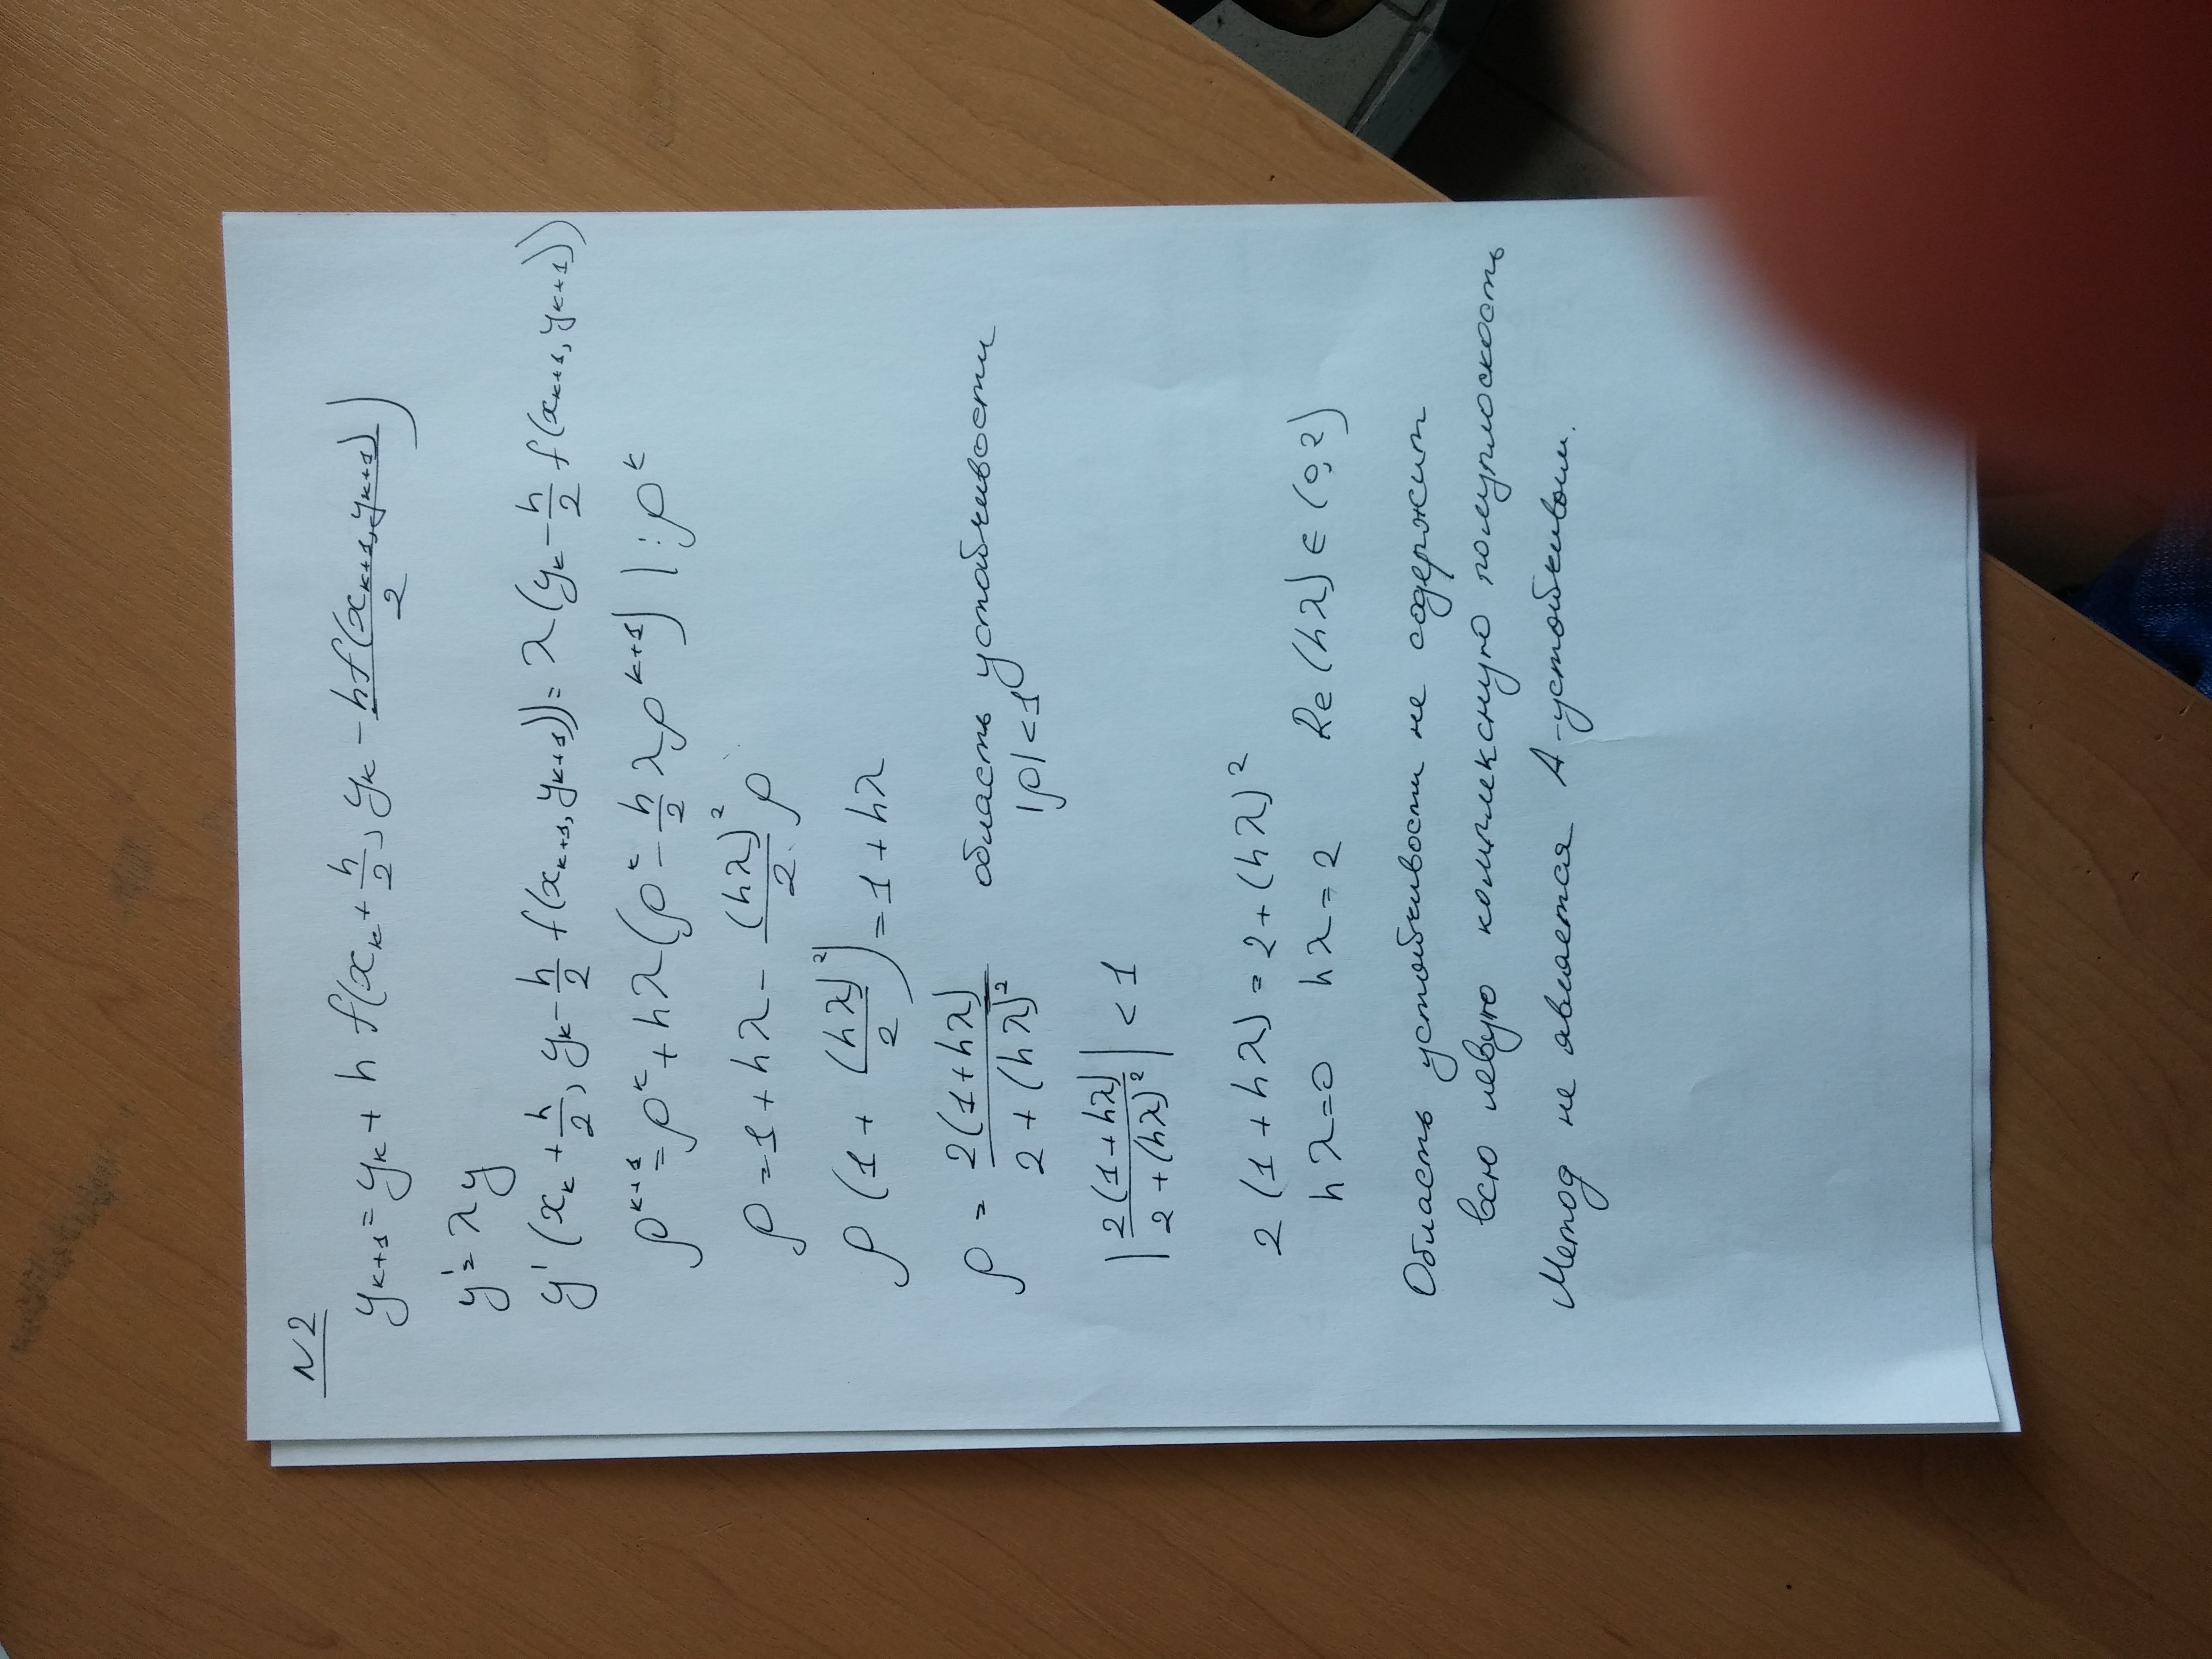 N2
y_{k+1} = y_k + h f(x_k + \frac{h}{2}, y_k - \frac{h f(x_{k+1}, y_{k+1})}{2})
y' = λy
y'(x_k + \frac{h}{2}, y_k - \frac{h}{2} f(x_{k+1}, y_{k+1})) = λ(y_k - \frac{h}{2} f(x_{k+1}, y_{k+1}))
ρ^{k+1} = ρ^k + hλ(ρ^k - \frac{h}{2} λρ^{k+1}) | : ρ^k
ρ = 1 + hλ - \frac{(hλ)^2}{2} ρ
ρ(1 + \frac{(hλ)^2}{2}) = 1 + hλ
ρ = \frac{2(1+hλ)}{2+(hλ)^2} область устойчивости
|ρ| < 1
|\frac{2(1+hλ)}{2+(hλ)^2}| < 1
2(1 + hλ) = 2 + (hλ)^2
hλ = 0 hλ = 2 Re(hλ) ∈ (0, 2)
Область устойчивости не содержит
всю левую комплексную полуплоскость
Метод не является А-устойчивым.